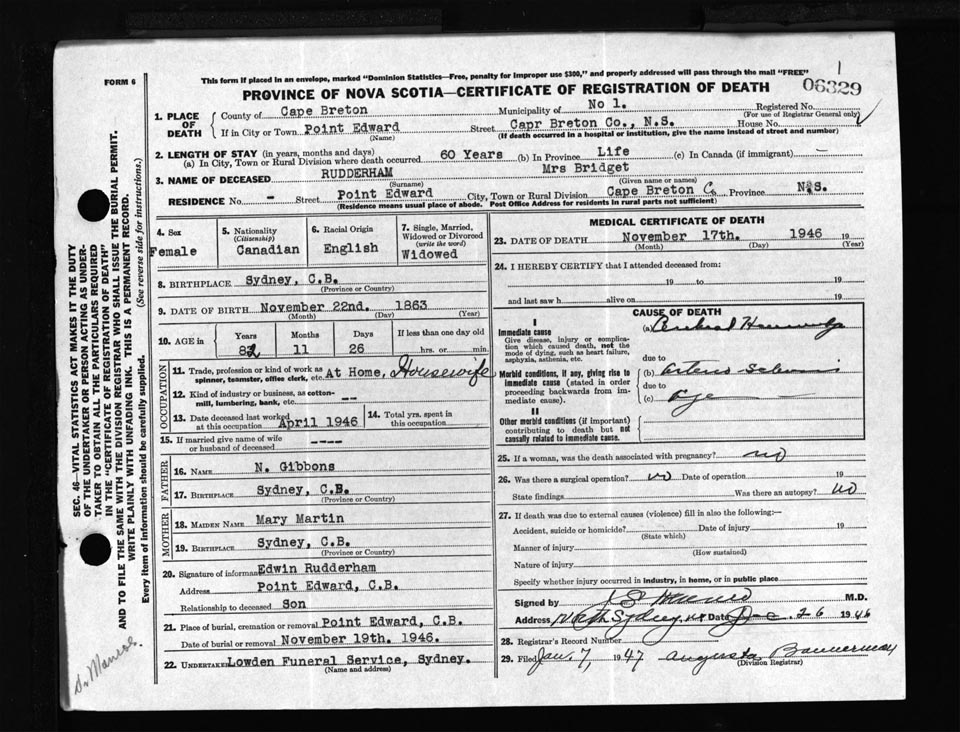 FORM 6
This form if placed in an envelope, marked "Dominion Statistics—Free, penalty for improper use $300," and properly addressed will pass through the mail "FREE"
1
06329
PROVINCE OF NOVA SCOTIA—CERTIFICATE OF REGISTRATION OF DEATH
1. PLACE OF DEATH
County of Cape Breton Municipality of No 1. Registered No.
(For use of Registrar General only)
If in City or Town Point Edward Street Capr Breton Co., N.S. House No.
(Name) (If death occurred in a hospital or institution, give the name instead of street and number)
2. LENGTH OF STAY (in years, months and days)
(a) In City, Town or Rural Division where death occurred 60 Years (b) In Province Life (c) In Canada (if immigrant) —
3. NAME OF DECEASED RUDDERHAM Mrs Bridget
(Surname) (Given name or names)
RESIDENCE No. - Street Point Edward City, Town or Rural Division Cape Breton C. Province N.S.
(Residence means usual place of abode. Post Office Address for residents in rural parts not sufficient)
4. Sex
Female
5. Nationality
(Citizenship)
Canadian
6. Racial Origin
English
7. Single, Married, Widowed or Divorced
(write the word)
Widowed
8. BIRTHPLACE Sydney, C.B.
(Province or Country)
9. DATE OF BIRTH November 22nd. 1863
(Month) (Day) (Year)
10. AGE in Years Months Days If less than one day old
82 11 26 hrs. or min.
OCCUPATION
11. Trade, profession or kind of work as spinner, teamster, office clerk, etc. At Home, Housewife
12. Kind of industry or business, as cotton-mill, lumbering, bank, etc. --
13. Date deceased last worked at this occupation April 1946
14. Total yrs. spent in this occupation
15. If married give name of wife or husband of deceased ----
FATHER
16. NAME N. Gibbons
17. BIRTHPLACE Sydney, C.B.
(Province or Country)
MOTHER
18. MAIDEN NAME Mary Martin
19. BIRTHPLACE Sydney, C.B.
(Province or Country)
20. Signature of informant Edwin Rudderham
Address Point Edward, C.B.
Relationship to deceased Son
21. Place of burial, cremation or removal Point Edward, C.B.
Date of burial or removal November 19th. 1946.
22. UNDERTAKER Lowden Funeral Service, Sydney.
(Name and address)
MEDICAL CERTIFICATE OF DEATH
23. DATE OF DEATH November 17th. 1946 19
(Month) (Day) (Year)
24. I HEREBY CERTIFY that I attended deceased from:
19 to 19
and last saw h alive on 19
CAUSE OF DEATH
I
Immediate cause
Give disease, injury or complication which caused death, not the mode of dying, such as heart failure, asphyxia, asthenia, etc.
(a) Cerebral
due to
Morbid conditions, if any, giving rise to immediate cause (stated in order proceeding backwards from immediate cause).
(b) Arterio
due to
(c) Age
II
Other morbid conditions (if important) contributing to death but not causally related to immediate cause.
25. If a woman, was the death associated with pregnancy? no
26. Was there a surgical operation? no Date of operation 19
State findings Was there an autopsy? no
27. If death was due to external causes (violence) fill in also the following:—
Accident, suicide or homicide? Date of injury 19
(State which)
Manner of injury
(How sustained)
Nature of injury
Specify whether injury occurred in industry, in home, or in public place
Signed by M.D.
Address North Sydney, Date Dec. 26 1946
28. Registrar's Record Number
29. Filed Jan. 7, 1947 Augusta Bannerman
(Division Registrar)
SEC. 46—VITAL STATISTICS ACT MAKES IT THE DUTY
OF THE UNDERTAKER OR PERSON ACTING AS UNDER-
TAKER TO OBTAIN ALL THE PARTICULARS REQUIRED
IN THE "CERTIFICATE OF REGISTRATION OF DEATH"
AND TO FILE THE SAME WITH THE DIVISION REGISTRAR WHO SHALL ISSUE THE BURIAL PERMIT.
WRITE PLAINLY WITH UNFADING INK. THIS IS A PERMANENT RECORD.
Every item of information should be carefully supplied. (See reverse side for instructions.)